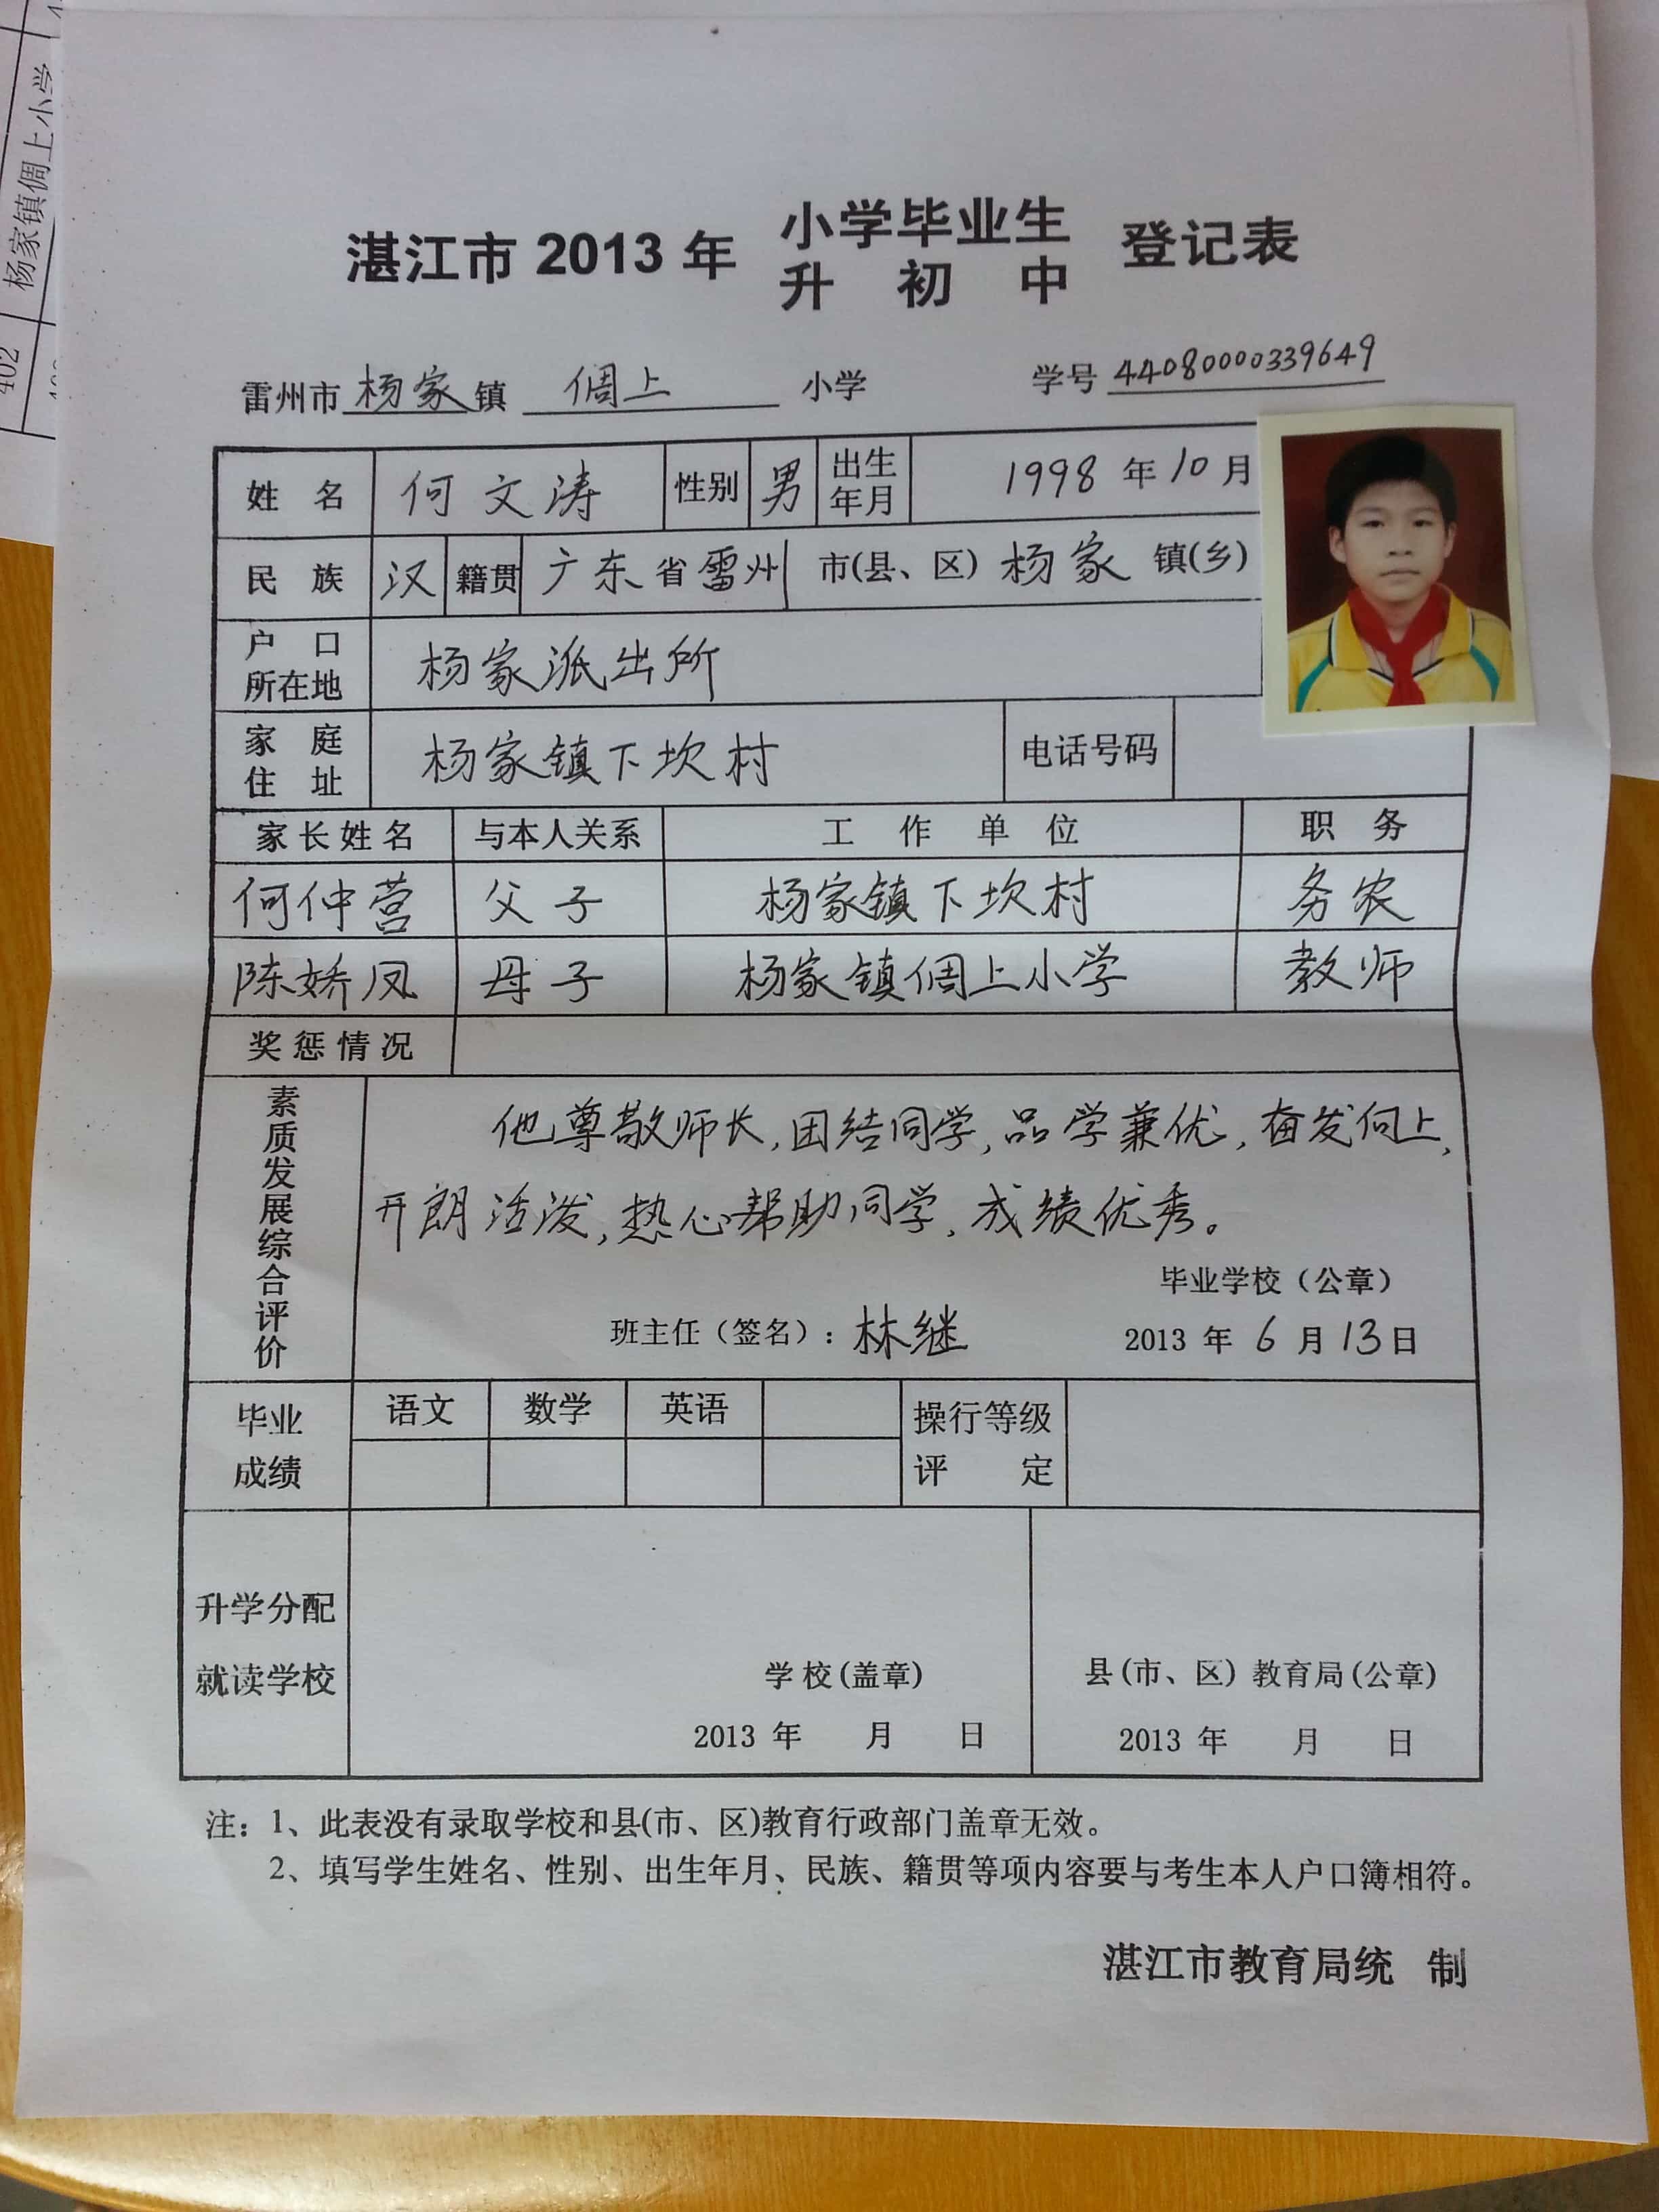 杨家镇倜上小学
402
湛江市 2013 年 小学毕业生 登记表
升 初 中
雷州市 杨家 镇 倜上 小学 学号 44080000339649
姓 名 何文涛 性别 男 出生年月 1998 年 10 月
民 族 汉 籍贯 广东 省 雷州 市(县、区) 杨家 镇(乡)
户 口 所在地 杨家派出所
家 庭 住 址 杨家镇下坎村 电话号码
家长姓名 与本人关系 工 作 单 位 职 务
何仲营 父子 杨家镇下坎村 务农
陈娇凤 母子 杨家镇倜上小学 教师
奖惩情况
素质发展综合评价
他尊敬师长,团结同学,品学兼优,奋发向上,
开朗活泼,热心帮助同学,成绩优秀。
毕业学校（公章）
班主任（签名）: 林继 2013 年 6 月 13 日
毕业成绩 语文 数学 英语 操行等级评 定
升学分配
就读学校
学校(盖章) 县(市、区) 教育局(公章)
2013 年 月 日 2013 年 月 日
注: 1、此表没有录取学校和县(市、区)教育行政部门盖章无效。
2、填写学生姓名、性别、出生年月、民族、籍贯等项内容要与考生本人户口簿相符。
湛江市教育局统 制